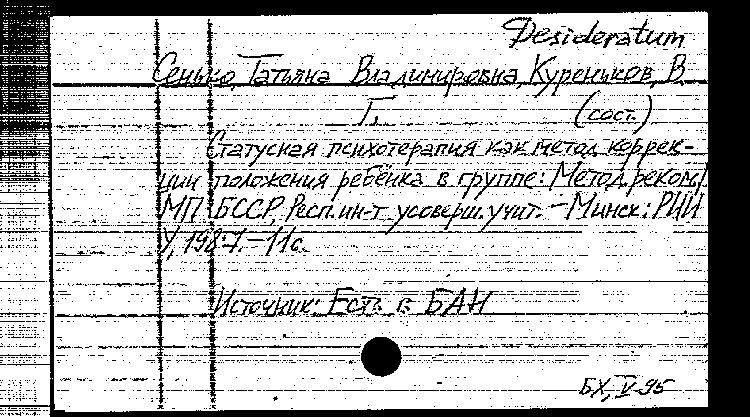 Desideratum
Сенько, Татьяна Владимировна, Куреньков, В.
Г. (сост.)
Статусная психотерапия как метод коррек-
ции положения ребёнка в группе: Метод. реком./
МП БССР, Респ. ин-т усоверш. учит. – Минск: РИИ
У, 1987. – 11 с.
Источник: Есть в БАН
БХ, V-95